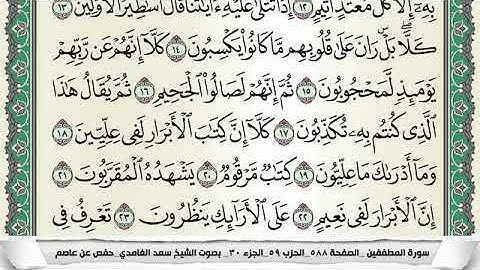 بِهِۦٓ إِلَّا كُلُّ مُعْتَدٍ أَثِيمٍ ١٢ إِذَا تُتْلَىٰ عَلَيْهِ ءَايَٰتُنَا قَالَ أَسَٰطِيرُ ٱلْأَوَّلِينَ ١٣
كَلَّا ۖ بَلْ ۜ رَانَ عَلَىٰ قُلُوبِهِم مَّا كَانُوا۟ يَكْسِبُونَ ١٤ كَلَّآ إِنَّهُمْ عَن رَّبِّهِمْ
يَوْمَئِذٍ لَّمَحْجُوبُونَ ١٥ ثُمَّ إِنَّهُمْ لَصَالُوا۟ ٱلْجَحِيمِ ١٦ ثُمَّ يُقَالُ هَٰذَا
ٱلَّذِى كُنتُم بِهِۦ تُكَذِّبُونَ ١٧ كَلَّآ إِنَّ كِتَٰبَ ٱلْأَبْرَارِ لَفِى عِلِّيِّينَ ١٨
وَمَآ أَدْرَىٰكَ مَا عِلِّيُّونَ ١٩ كِتَٰبٌ مَّرْقُومٌ ٢٠ يَشْهَدُهُ ٱلْمُقَرَّبُونَ ٢١
إِنَّ ٱلْأَبْرَارَ لَفِى نَعِيمٍ ٢٢ عَلَى ٱلْأَرَآئِكِ يَنظُرُونَ ٢٣ تَعْرِفُ فِى
سورة المطففين _ الصفحة ٥٨٨ _ الحزب ٥٩ _ الجزء ٣٠ _ بصوت الشيخ سعد الغامدي _ حفص عن عاصم